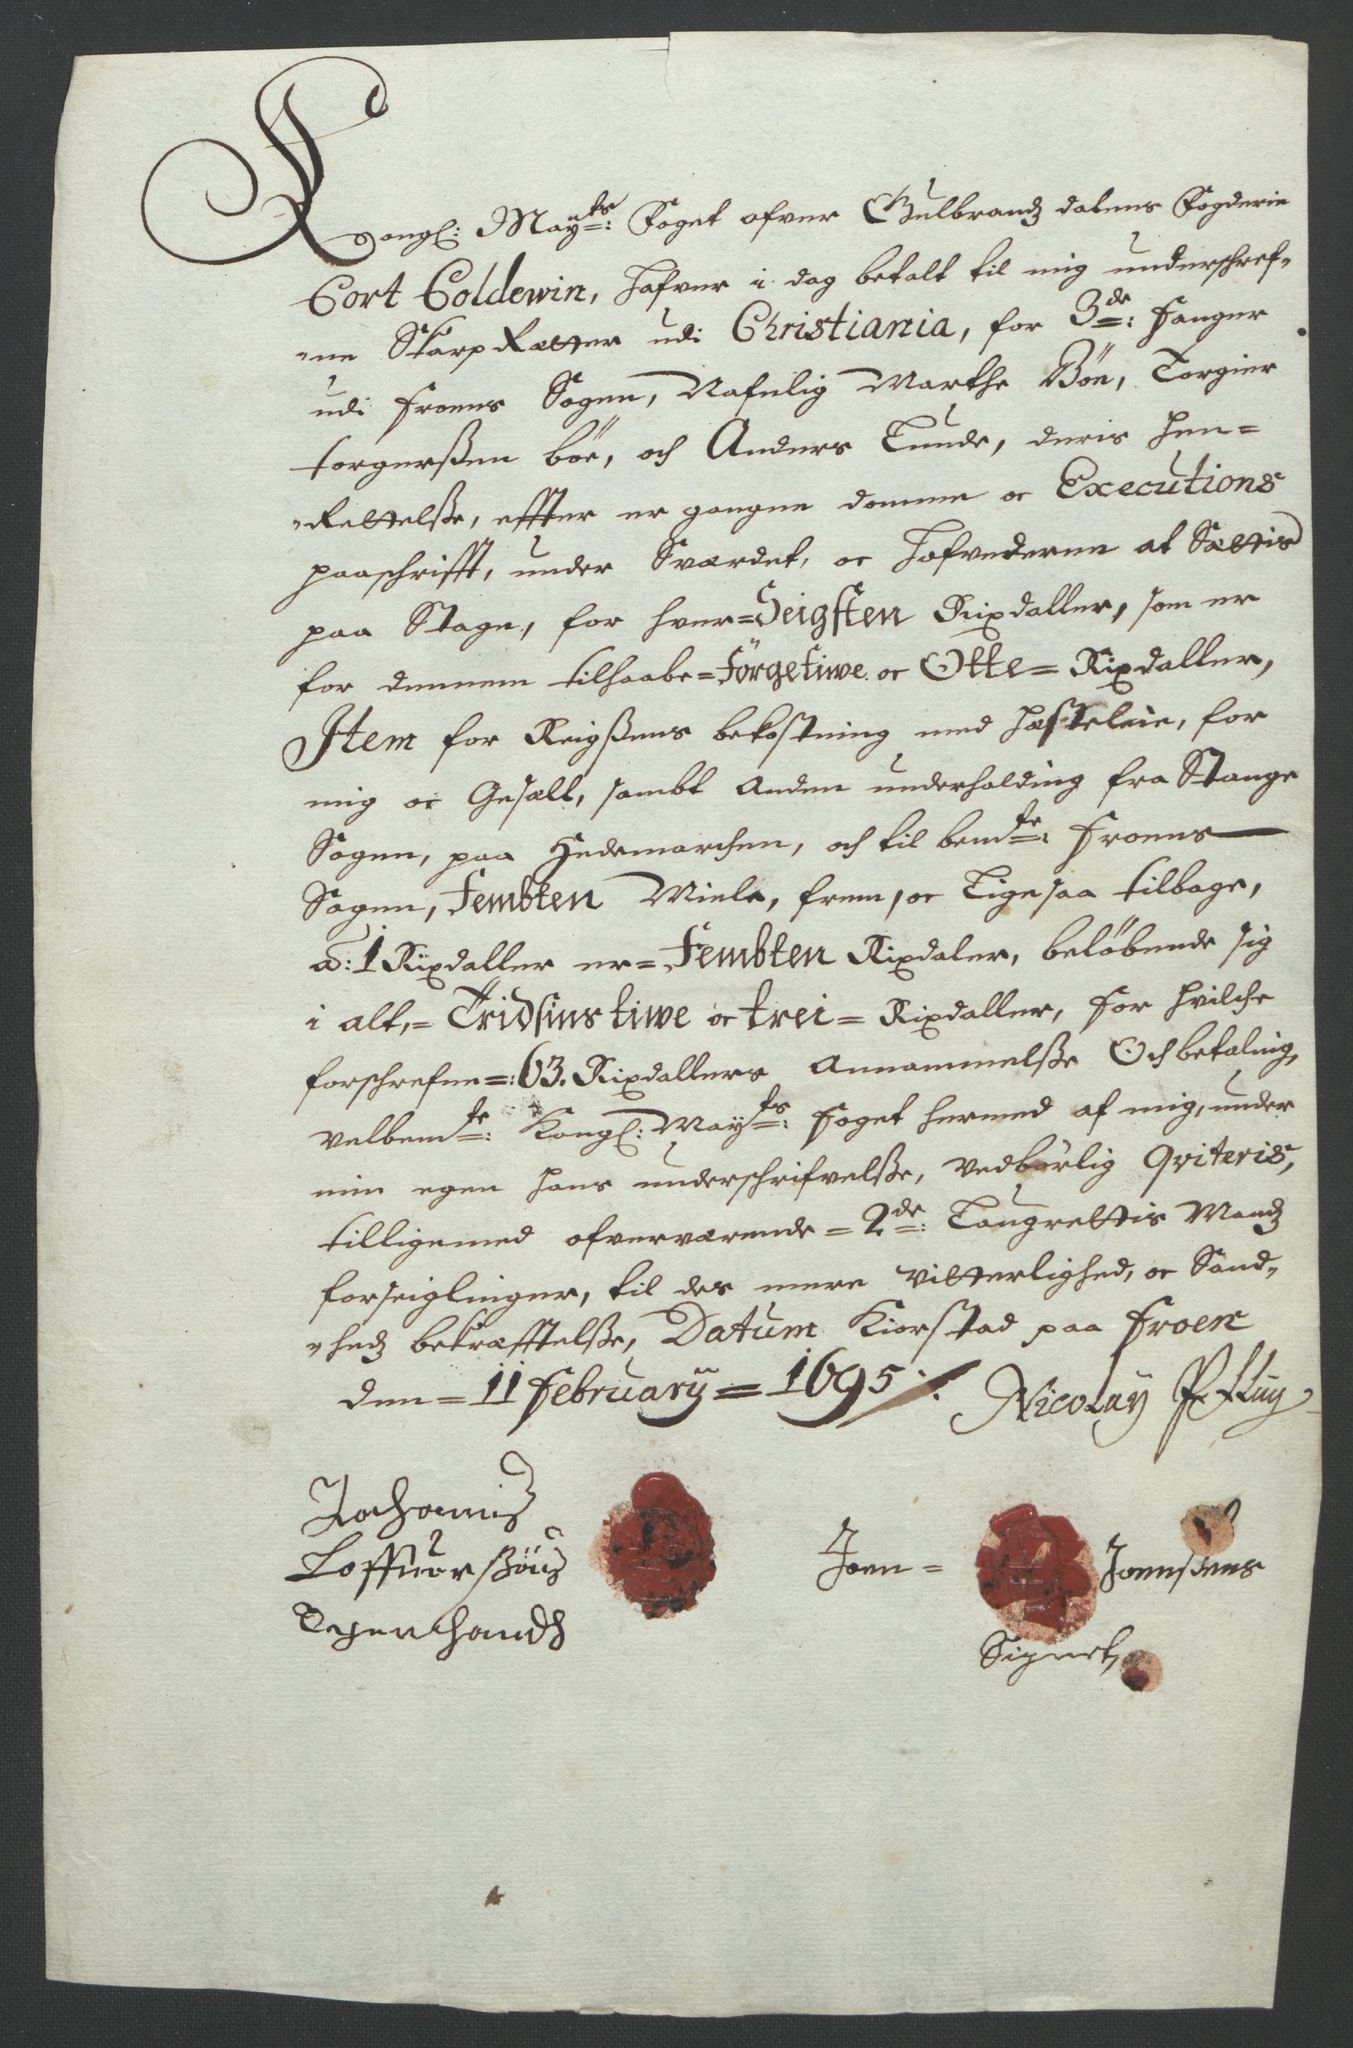 Kongl: Mayts: Foget ofver Gulbrandz dalens Fogderie
Cort Coldewin, hafver i dag betalt til mig underschref„
„ne Skarp Retter udi Christiania, for 3de: Fanger
udi Froens Sogen, Nafnlig Marthe Böe, Torgier
torgerßen böe, och Anders Tunde, deris hen=
„Rettelße, effter er gangne domme oc Executions
paaschrifft, under Sværdet, oc hofvederne at Sættis
paa Stage, for hver=Seigsten Rixdaller, som er
for dennem tilhaabe=Förgetiwe oc Otte= Rixdaller,
Item for Reigßens bekostning med hæsteleie, for
mig oc Gesælt, sambt anden underholding fra Stange
Sogen, paa Hedemarchen, och til bemte: Froens
Sogen, Fembten Miele, frem, oc Ligesaa tilbage,
a: 1 Rixdaller er=Fembten Rixdaler, beløbende sig
i alt,= Tridsinstiwe oc trei= Rixdaller, for hvilche
forschrefne=:63. Rixdallers Annammelße Och betaling,
velbemte: Kongl: Mayts: Foget hermed af mig, under
min egen hans underschrifvelße, vedbørlig Qviteris,
tilligemed ofverværende=2de: Laugrettis Mænds
forseiglinger, til des mere vitterlighed, oc Sand„
„hedz bekræfftelße, Datum Kiorstad paa Froen
den=11 February=1695 /. Nicolay Pflug
Johannis
Loffuorßöns
Egen handt
Joen= Joenßens
Signet,